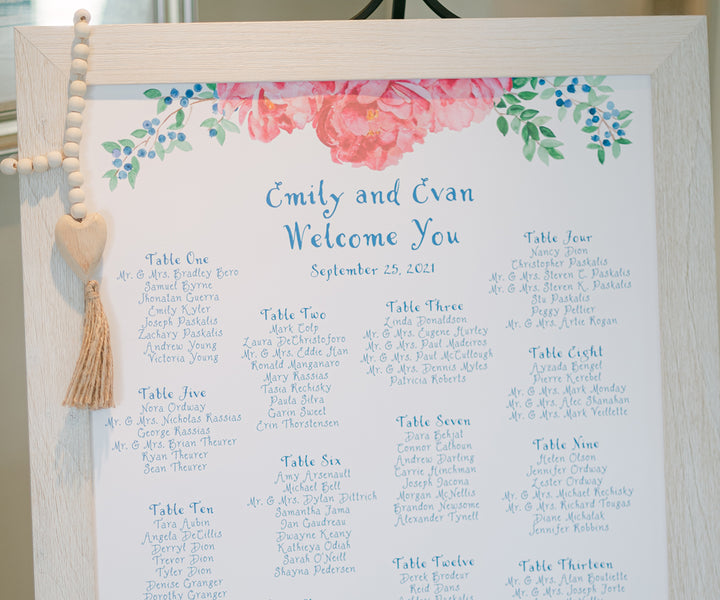 Emily and Evan
Welcome You
September 25, 2021
Table One
Mr. & Mrs. Bradley Bero
Samuel Byrne
Jhonatan Guerra
Emily Kyler
Joseph Paskalis
Zachary Paskalis
Andrew Young
Victoria Young
Table Two
Mark Colp
Laura DeChristoforo
Mr. & Mrs. Eddie Han
Ronald Manganaro
Mary Rassias
Tasia Rechisky
Paula Silva
Garin Sweet
Erin Thorstensen
Table Three
Linda Donaldson
Mr. & Mrs. Eugene Hurley
Mr. & Mrs. Paul Madeiros
Mr. & Mrs. Paul McCullough
Mr. & Mrs. Dennis Myles
Patricia Roberts
Table Four
Nancy Dion
Christopher Paskalis
Mr. & Mrs. Steven C. Paskalis
Mr. & Mrs. Steven K. Paskalis
Stu Paskalis
Peggy Peltier
Mr. & Mrs. Artie Rogan
Table Five
Nora Ordway
Mr. & Mrs. Nicholas Rassias
George Rassias
Mr. & Mrs. Brian Theurer
Ryan Theurer
Sean Theurer
Table Six
Amy Arsenault
Michael Bell
Mr. & Mrs. Dylan Dittrich
Samantha Fama
Ian Gaudreau
Dwayne Keany
Kathieya Odiah
Sarah O'Neill
Shayna Pedersen
Table Seven
Dara Behjat
Connor Calhoun
Andrew Darling
Carrie Hinchman
Joseph Jacona
Morgan McNellis
Brandon Newsome
Alexander Tynell
Table Eight
Ayzada Bengel
Pierre Kerebel
Mr. & Mrs. Mark Monday
Mr. & Mrs. Alec Shanahan
Mr. & Mrs. Mark Veillette
Table Nine
Helen Olson
Jennifer Ordway
Lester Ordway
Mr. & Mrs. Michael Rechisky
Mr. & Mrs. Richard Tougas
Diane Michalak
Jennifer Robbins
Table Ten
Tara Aubin
Angela DeCillis
Derryl Dion
Trevor Dion
Tyler Dion
Denise Granger
Dorothy Granger
Table Twelve
Derek Brodeur
Reid Dans
Table Thirteen
Mr. & Mrs. Alan Boutiette
Mr. & Mrs. Joseph Forte